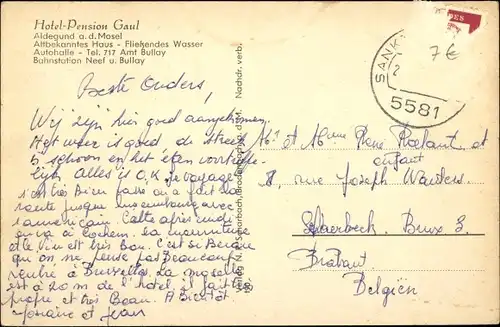 Hotel-Pension Gaul
Aldegund a. d. Mosel
Altbekanntes Haus - Fließendes Wasser
Autohalle - Tel. 717 Amt Bullay
Bahnstation Neef u. Bullay
Beste Ouders,
Wij zijn hier goed aangekomen.
Het weer is goed de streek
is schoon en het eten voortreffe-
lijk. Alles is O.K. Le voyage
s'est très bien faite on a fait la
route jusque Luxembourg avec
américain. Cette après midi
on va à Cochem. La nourriture
et le vin est très bon. C'est
qu'on ne pense pas beaucoup
rentré à Bruxelles. La moselle
est à 20 m de l'hotel. il fait
propre et très Beau. A Bientôt
Josiane et Jean
Nachdr. verb.
Mr et Mme René Roelant et
enfant
8, rue Joseph Wauters.
Schaerbeek. Brux 3.
Brabant
Belgiën
SANKT
5581
7€